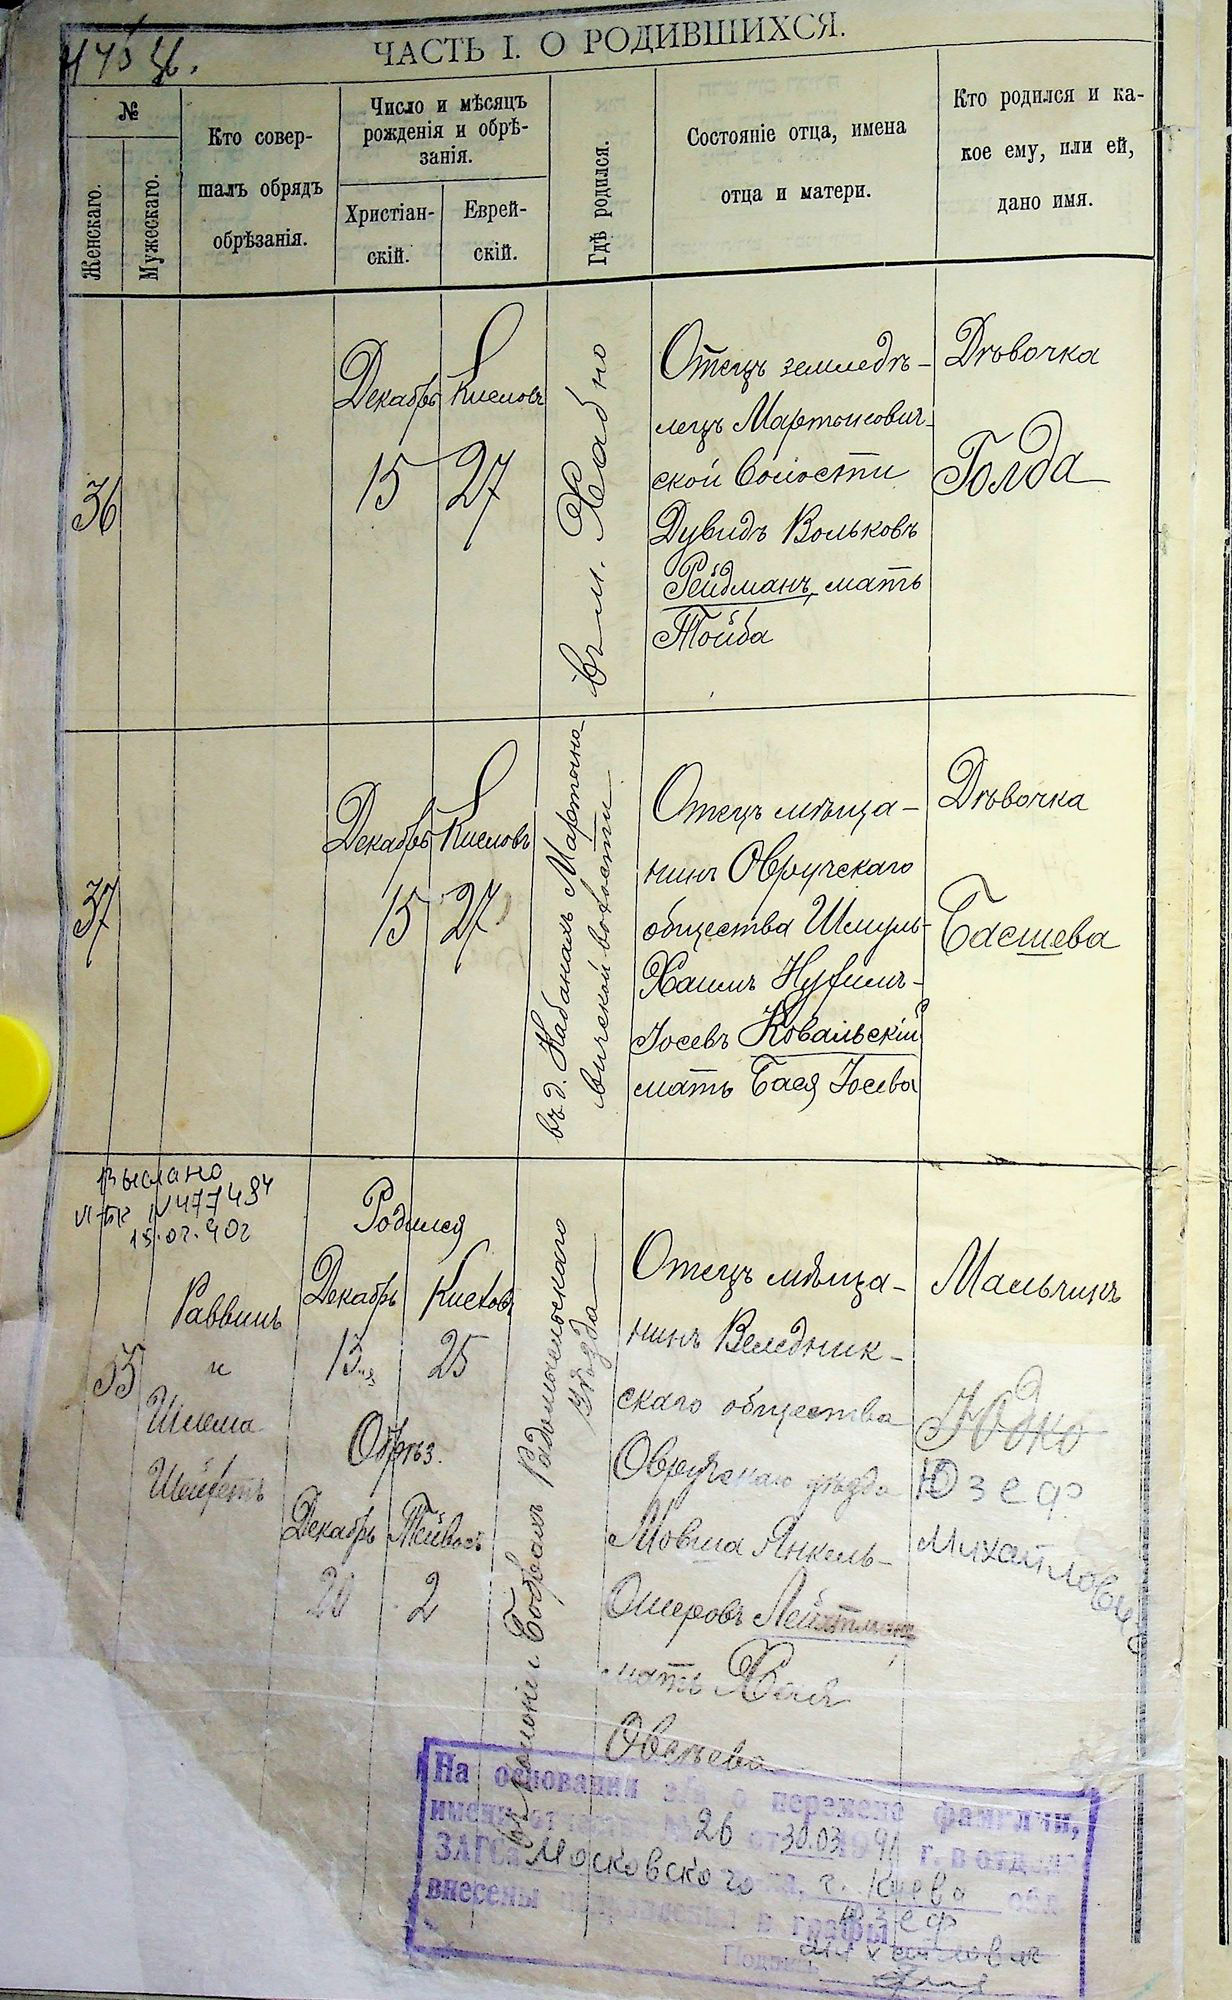 ЧАСТЬ I. О РОДИВШИХСЯ.
№
Женскаго.
Мужескаго.
Кто совер-
шалъ обрядъ
обрѣзанія.
Число и мѣсяцъ
рожденія и обрѣ-
занія.
Христіан-
скій.
Еврей-
скій.
Гдѣ родился.
Состояніе отца, имена
отца и матери.
Кто родился и ка-
кое ему, или ей,
дано имя.
36
Декабрь
15
Кислевъ
27
въ м. Хабно
Отецъ земледѣ-
лецъ Мартынович-
ской волости
Дувидъ Вольковъ
Рейдманъ, мать
Тойба
Дѣвочка
Голда
37
Декабрь
15
Кислевъ
27
въ д. Кабанахъ Мартыно-
вичской волости
Отецъ мѣща-
нинъ Овручскаго
общества Шмуль-
Хаимъ Нухимъ-
Іосевъ Ковальскій
мать Бася Іосева
Дѣвочка
Басшева
Выслано
N 477484
15.02.90г
35
Раввинъ
и
Шлема
Шейфетъ
Родился
Декабрь
13
Кислевъ
25
Обрѣз.
Декабрь
20
Тейвесъ
2
въ колоніи Бобрахъ Радомысльскаго
уѣзда
Отецъ мѣща-
нинъ Веледник-
скаго общества
Овручскаго уѣзда
Мовша Янкель-
Ошеровъ Лейхтманъ
мать Хая
Овсѣева
Мальчикъ
Юдко
Юзеф
Михайлович
На основании з/а о перемене фамилии,
имени отчества № 26 от 30.03.1991 г. в отделе
ЗАГСа Московского г. Киева обл
внесены исправления в графы Юзеф
Михайлович
Подпись